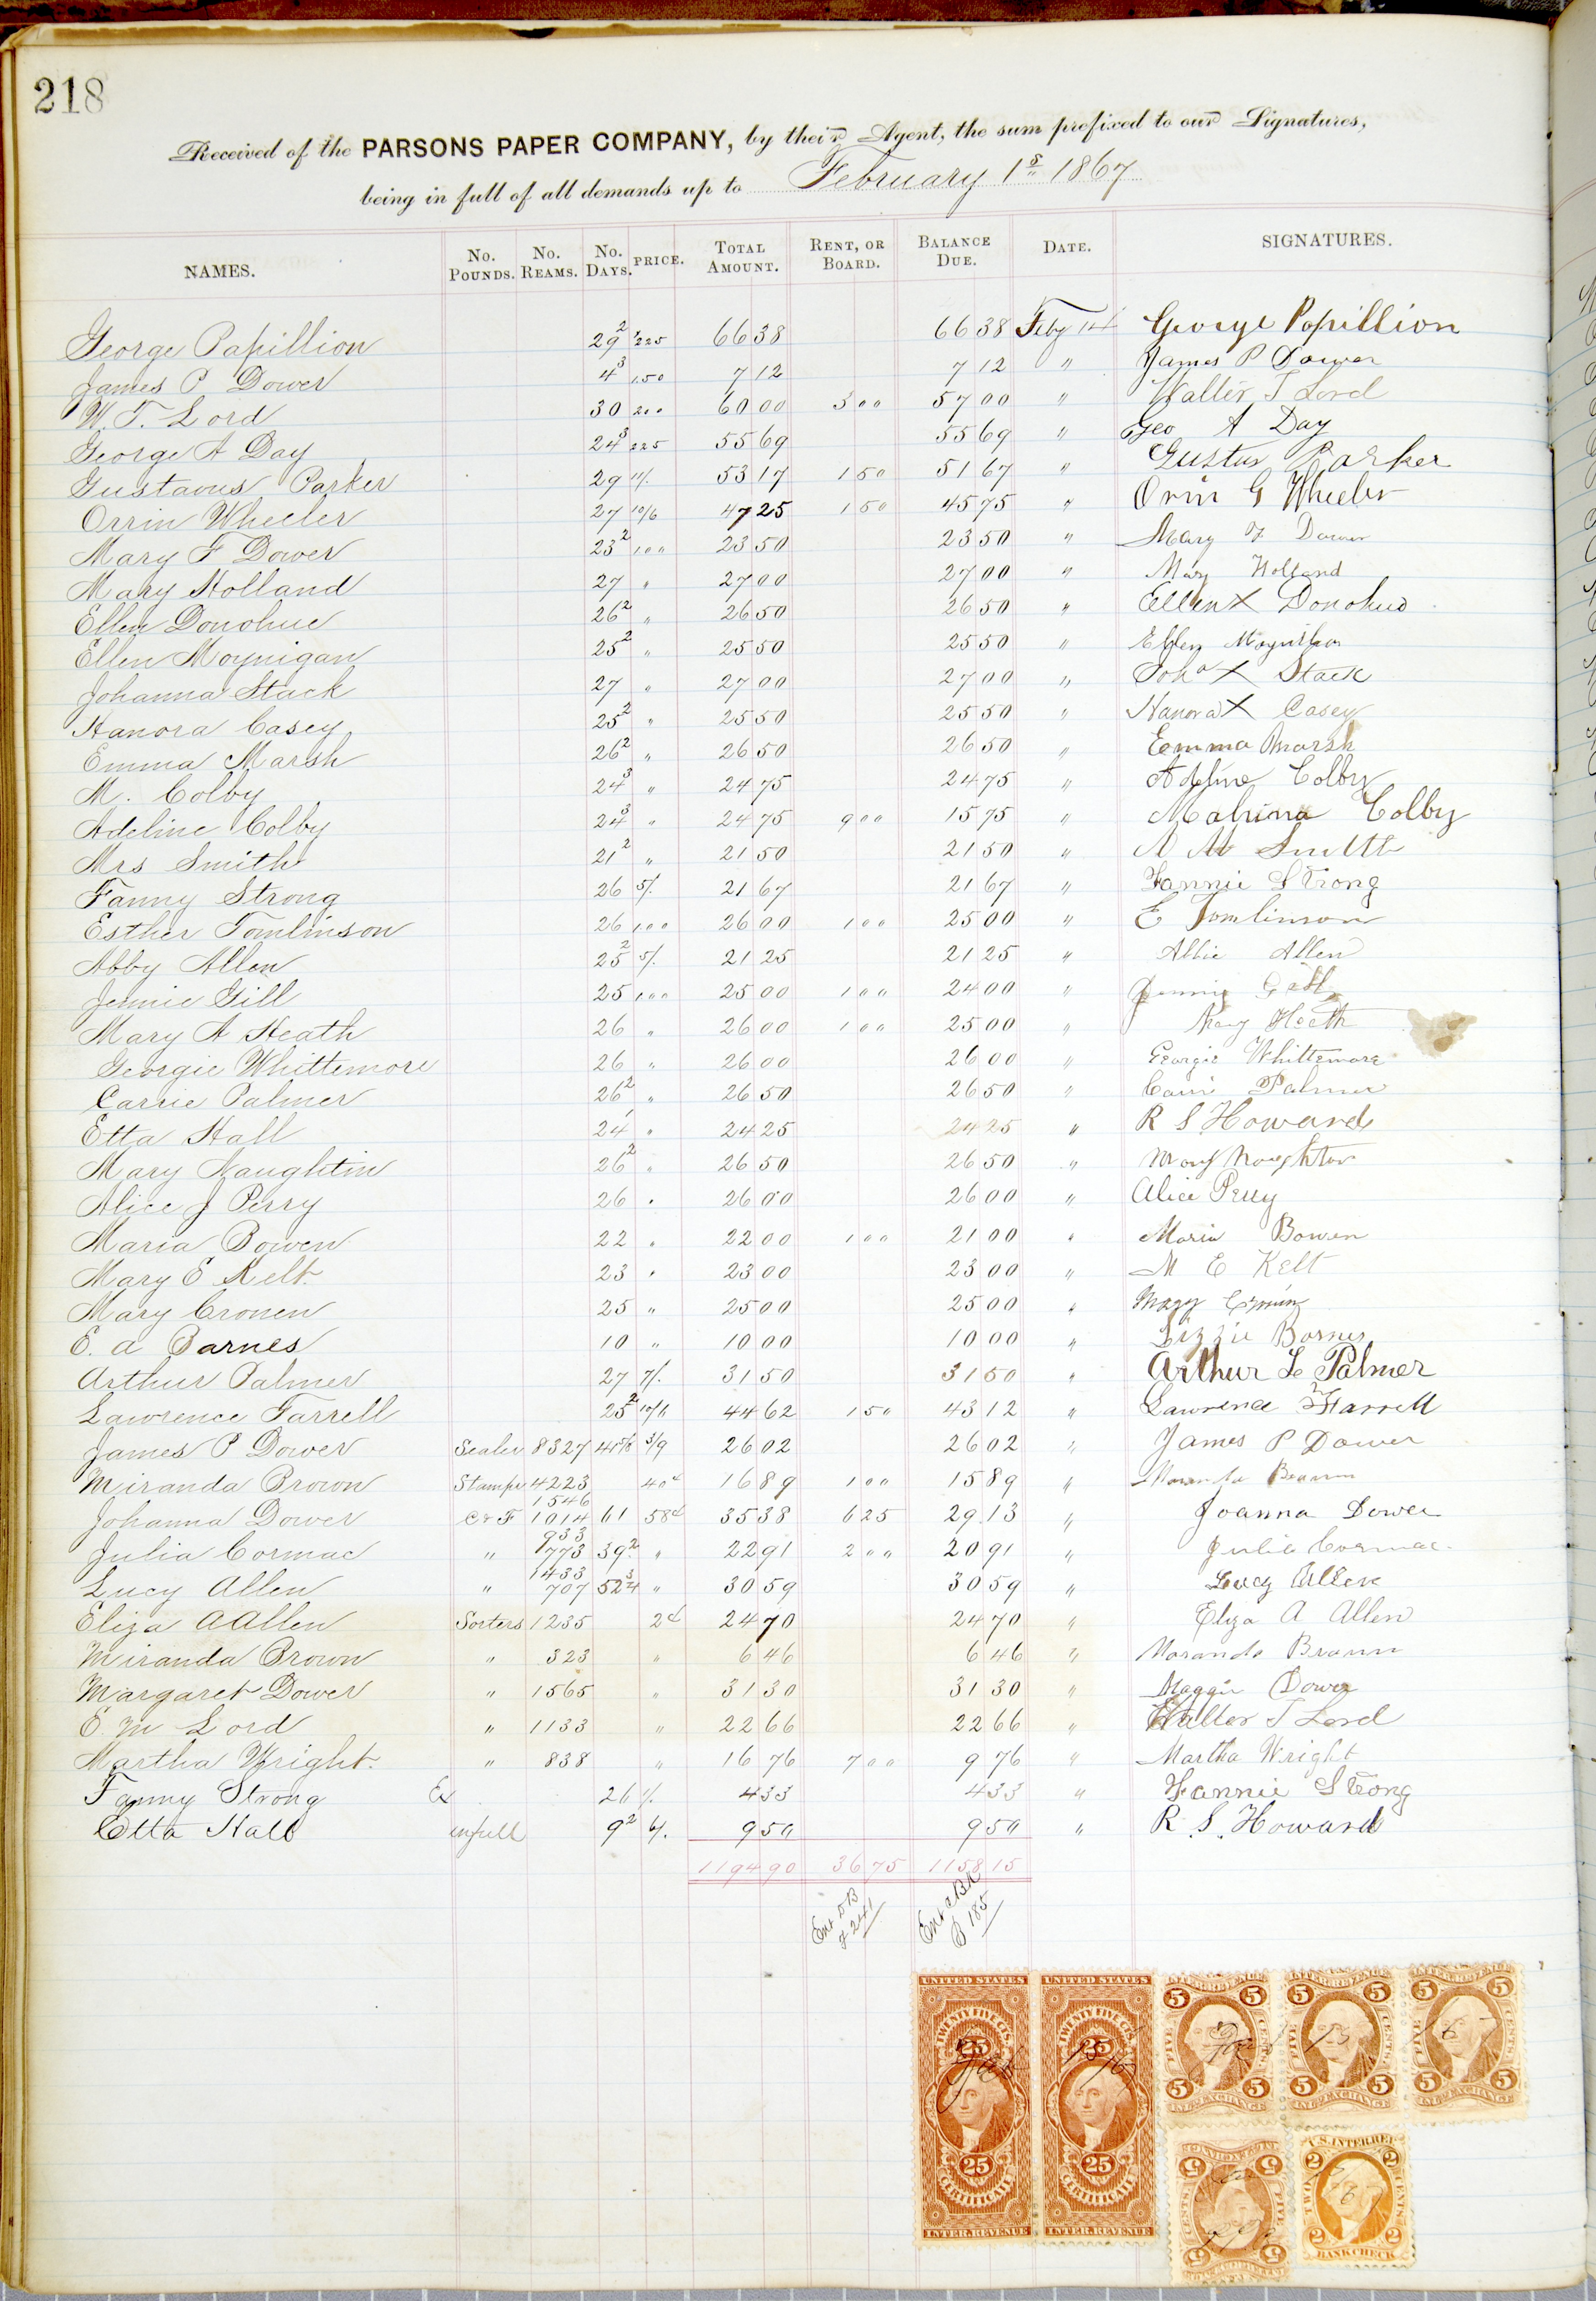 218
Received of the PARSONS PAPER COMPANY, by their Agent, the sum prefixed to our Signatures,
being in full of all demands up to February 1st 1867
NAMES. No. POUNDS. No. REAMS. No. DAYS. PRICE. TOTAL AMOUNT. RENT, OR BOARD. BALANCE DUE. DATE. SIGNATURES.
George Papillion 29 2 225 66 38 66 38 Feby 14 George Papillion
James P Dower 4 3 1.50 7 12 7 12 " James P Dower
W. T. Lord 30 200 60 00 3 00 57 00 " Walter T Lord
George A Day 24 3 225 55 69 55 69 " Geo A Day
Gustavus Parker 29 11/. 53 17 1 50 51 67 " Gustus Parker
Orrin Wheeler 27 10/6 47 25 1 50 45 75 " Orin G Wheeler
Mary F Dower 23 2 1.00 23 50 23 50 " Mary F Dower
Mary Holland 27 " 27 00 27 00 " Mary Holland
Ellen Donohue 26 2 " 26 50 26 50 " Ellen X Donohue
Ellen Moynigan 25 2 " 25 50 25 50 " Ellen
Johanna Stack 27 " 27 00 27 00 " Joha X Stack
Hanora Casey 25 2 " 25 50 25 50 " Hanora X Casey
Emma Marsh 26 2 " 26 50 26 50 " Emma Marsh
M. Colby 24 3 " 24 75 24 75 " Adeline Colby
Adeline Colby 24 3 " 24 75 9 00 15 75 " Malvina Colby
Mrs Smith 21 2 " 21 50 21 50 " Smith
Fanny Strong 26 5/. 21 67 21 67 " Fannie Strong
Esther Tomlinson 26 1.00 26 00 1 00 25 00 " E Tomlinson
Abby Allen 25 2 5/. 21 25 21 25 " Abbie Allen
Jennie Gill 25 1.00 25 00 1 00 24 00 " Jennie Gill
Mary A Heath 26 " 26 00 1 00 25 00 " Mary Heath
Georgie Whittemore 26 " 26 00 26 00 " Georgie Whittemore
Carrie Palmer 26 2 " 26 50 26 50 " Carrie Palmer
Etta Hall 24 1 " 24 25 24 25 " R S Howard
Mary Naughtin 26 2 " 26 50 26 50 " Mary Naughton
Alice J Perry 26 " 26 00 26 00 " Alice Perry
Maria Bowen 22 " 22 00 1 00 21 00 " Maria Bowen
Mary E Kelt 23 " 23 00 23 00 " M E Kelt
Mary Cronen 25 " 25 00 25 00 " Mary
E. a Barnes 10 " 10 00 10 00 " Lizzie Barnes
Arthur Palmer 27 7/. 31 50 31 50 " Arthur L Palmer
Lawrence Farrell 25 2 10/6 44 62 1 50 43 12 " Lawrence Farrell
James P Dower Sealer 8327 3/9 26 02 26 02 " James P Dower
Miranda Brown Stamper 4223 40¢ 16 89 1 00 15 89 " Brown
Johanna Dower C & F 1546 1014 61 58¢ 35 38 6 25 29 13 " Joanna Dower
Julia Cormac " 933 773 39 2 " 22 91 2 00 20 91 " Julia Cormac
Lucy Allen " 1433 707 52 3/4 " 30 59 30 59 " Lucy Allen
Eliza A Allen Sorters 1235 2¢ 24 70 24 70 " Eliza A Allen
Miranda Brown " 323 " 6 46 6 46 " Maranda Brown
Margaret Dower " 1565 " 31 30 31 30 " Maggie Dower
E. M Lord " 1133 " 22 66 22 66 " Walter T Lord
Martha Wright. " 838 " 16 76 7 00 9 76 " Martha Wright
Fanny Strong Ex 26 1/. 4 33 4 33 " Fannie Strong
Etta Hall in full 9 2 6/. 9 50 9 50 " R. S. Howard
1194 90 36 75 1158 15
Ent D B
P 241
Ent C BK
P 185
UNITED STATES UNITED STATES
TWENTY FIVE CTS. TWENTY FIVE CTS.
25 25
25 25
CERTIFICATE CERTIFICATE
INTER. REVENUE INTER. REVENUE
INTER. REVENUE INTER. REVENUE INTER. REVENUE
5 5 5 5 5 5
FIVE CENTS. FIVE CENTS. FIVE CENTS.
5 5 5 5 5 5
INL. EXCHANGE INL. EXCHANGE INL. EXCHANGE
5 5
FIVE CENTS.
5 5
U.S. INTER. REV.
2 2
TWO CENTS.
2 2
BANK CHECK